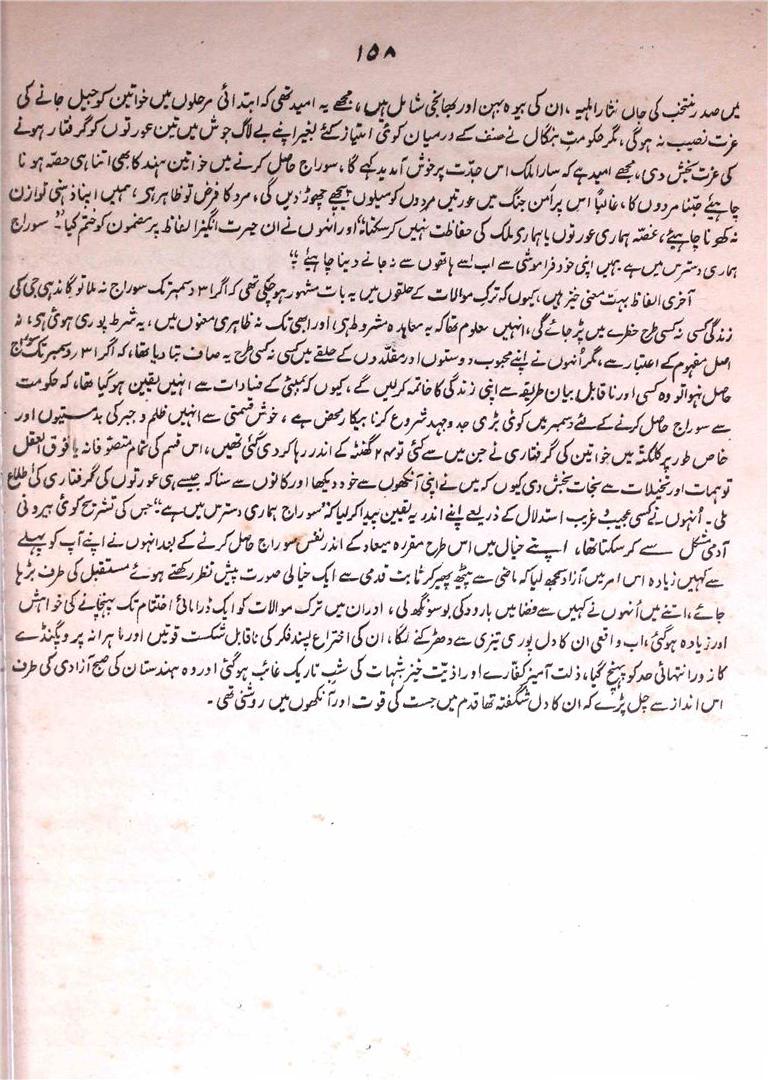 ۱۵۸
میں صدر منتخب کی جاں نثار اہلیہ، ان کی بیوہ بہن اور بھانجی شامل ہیں، مجھے یہ امید تھی کہ ابتدائی مرحلوں میں خواتین کو جیل جانے کی
عزت نصیب نہ ہوگی، مگر حکومت بنگال نے صنف کے درمیان کوئی امتیاز کئے بغیر اپنے بے لاگ جوش میں تین عورتوں کو گرفتار ہونے
کی عزت بخش دی، مجھے امید ہے کہ سارا ملک اس جدّت پر خوش آمدید کہے گا، سوراج حاصل کرنے میں خواتین ہند کا بھی اتنا ہی حصّہ ہونا
چاہئے جتنا مردوں کا، غالبًا اس پر امن جنگ میں عورتیں مردوں کو میلوں پیچھے چھوڑ دیں گی، مرد کا فرض تو ظاہر ہی، ہمیں اپنا ذہنی توازن
نہ کھونا چاہیئے، غصّہ ہماری عورتوں یا ہماری ملک کی حفاظت نہیں کر سکتا" اور انہوں نے ان حیرت انگیز الفاظ پر مضمون کو ختم کیا۔ "سوراج
ہماری دسترس میں ہے ہمیں اپنی خود فراموشی سے اب اسے ہاتھوں سے نہ جانے دینا چاہئے"
آخری الفاظ بہت معنی خیز ہیں، کیوں کہ ترک موالات کے حلقوں میں یہ بات مشہور ہو چکی تھی کہ اگر ۳۱ دسمبر تک سوراج نہ ملا تو گاندھی جی کی
زندگی کسی نہ کسی طرح خطرے میں پڑ جائے گی، انہیں معلوم تھا کہ یہ معاہدہ مشروط ہی، اور ابھی تک نہ ظاہری معنوں میں، یہ شرط پوری ہوئی ہی، نہ
اصل مفہوم کے اعتبار سے، مگر اُنھوں نے اپنے محبوب دوستوں اور مقلّدوں کے حلقے میں کسی نہ کسی طرح یہ صاف بتا دیا تھا، کہ اگر ۳۱ دسمبر تک سوراج
حاصل نہ ہوا تو وہ کسی اور ناقابل بیان طریقہ سے اپنی زندگی کا خاتمہ کر لیں گے، کیوں کہ بمبئی کے فسادات سے انہیں یقین ہو گیا تھا، کہ حکومت
سے سوراج حاصل کرنے کے لئے دسمبر میں کوئی بڑی جدوجہد شروع کرنا بیکار محض ہے، خوش قسمتی سے انہیں ظلم و جبر کی بدمستیوں اور
خاص طور پر کلکتہ میں خواتین کی گرفتاری نے جن میں سے کئی تو ۲۴ گھنٹہ کے اندر رہا کر دی گئی تھیں، اس قسم کی تمام متصوفانہ یا فوق العقل
توہمات اور تخیلات سے نجات بخش دی کیوں کہ میں نے اپنی آنکھوں سے خود دیکھا اور کانوں سے سنا کہ جیسے ہی عورتوں کی گرفتاری کی اطلاع
ملی۔ اُنہوں نے کسی عجیب و غریب استدلال کے ذریعے اپنے اندر یہ یقین پیدا کر لیا کہ "سوراج ہماری دسترس میں ہے" جس کی تشریح کوئی بیرونی
آدمی مشکل سے کر سکتا تھا، اپنے خیال میں اس طرح مقررہ میعاد کے اندر نفس سوراج حاصل کرنے کے بعد انہوں نے اپنے آپ کو پہلے
سے کہیں زیادہ اس امر میں آزاد سمجھ لیا کہ ماضی سے پیٹھ پھیر کر ثابت قدمی سے ایک خیالی صورت پیش نظر رکھتے ہوئے مستقبل کی طرف بڑھا
جائے، اتنے میں اُنہوں نے کہیں سے فضا میں بارود کی بو سونگھ لی، اور ان میں ترک موالات کو ایک ڈرامائی اختتام تک پہنچانے کی خواہش
اور زیادہ ہو گئی، اب واقعی ان کا دل پوری تیزی سے دھڑکنے لگا، ان کی اختراع پسند فکر کی ناقابل شکست قوتیں اور ماہرانہ پروپگنڈے
کا زور انتہائی حد کو پہنچ گیا، ذلت آمیز کفارے اور اذیّت خیز شبہات کی شب تاریک غائب ہو گئی اور وہ ہندستان کی صبح آزادی کی طرف
اس انداز سے چل پڑے کہ ان کا دل شگفتہ تھا قدم میں جست کی قوت اور آنکھوں میں روشنی تھی۔